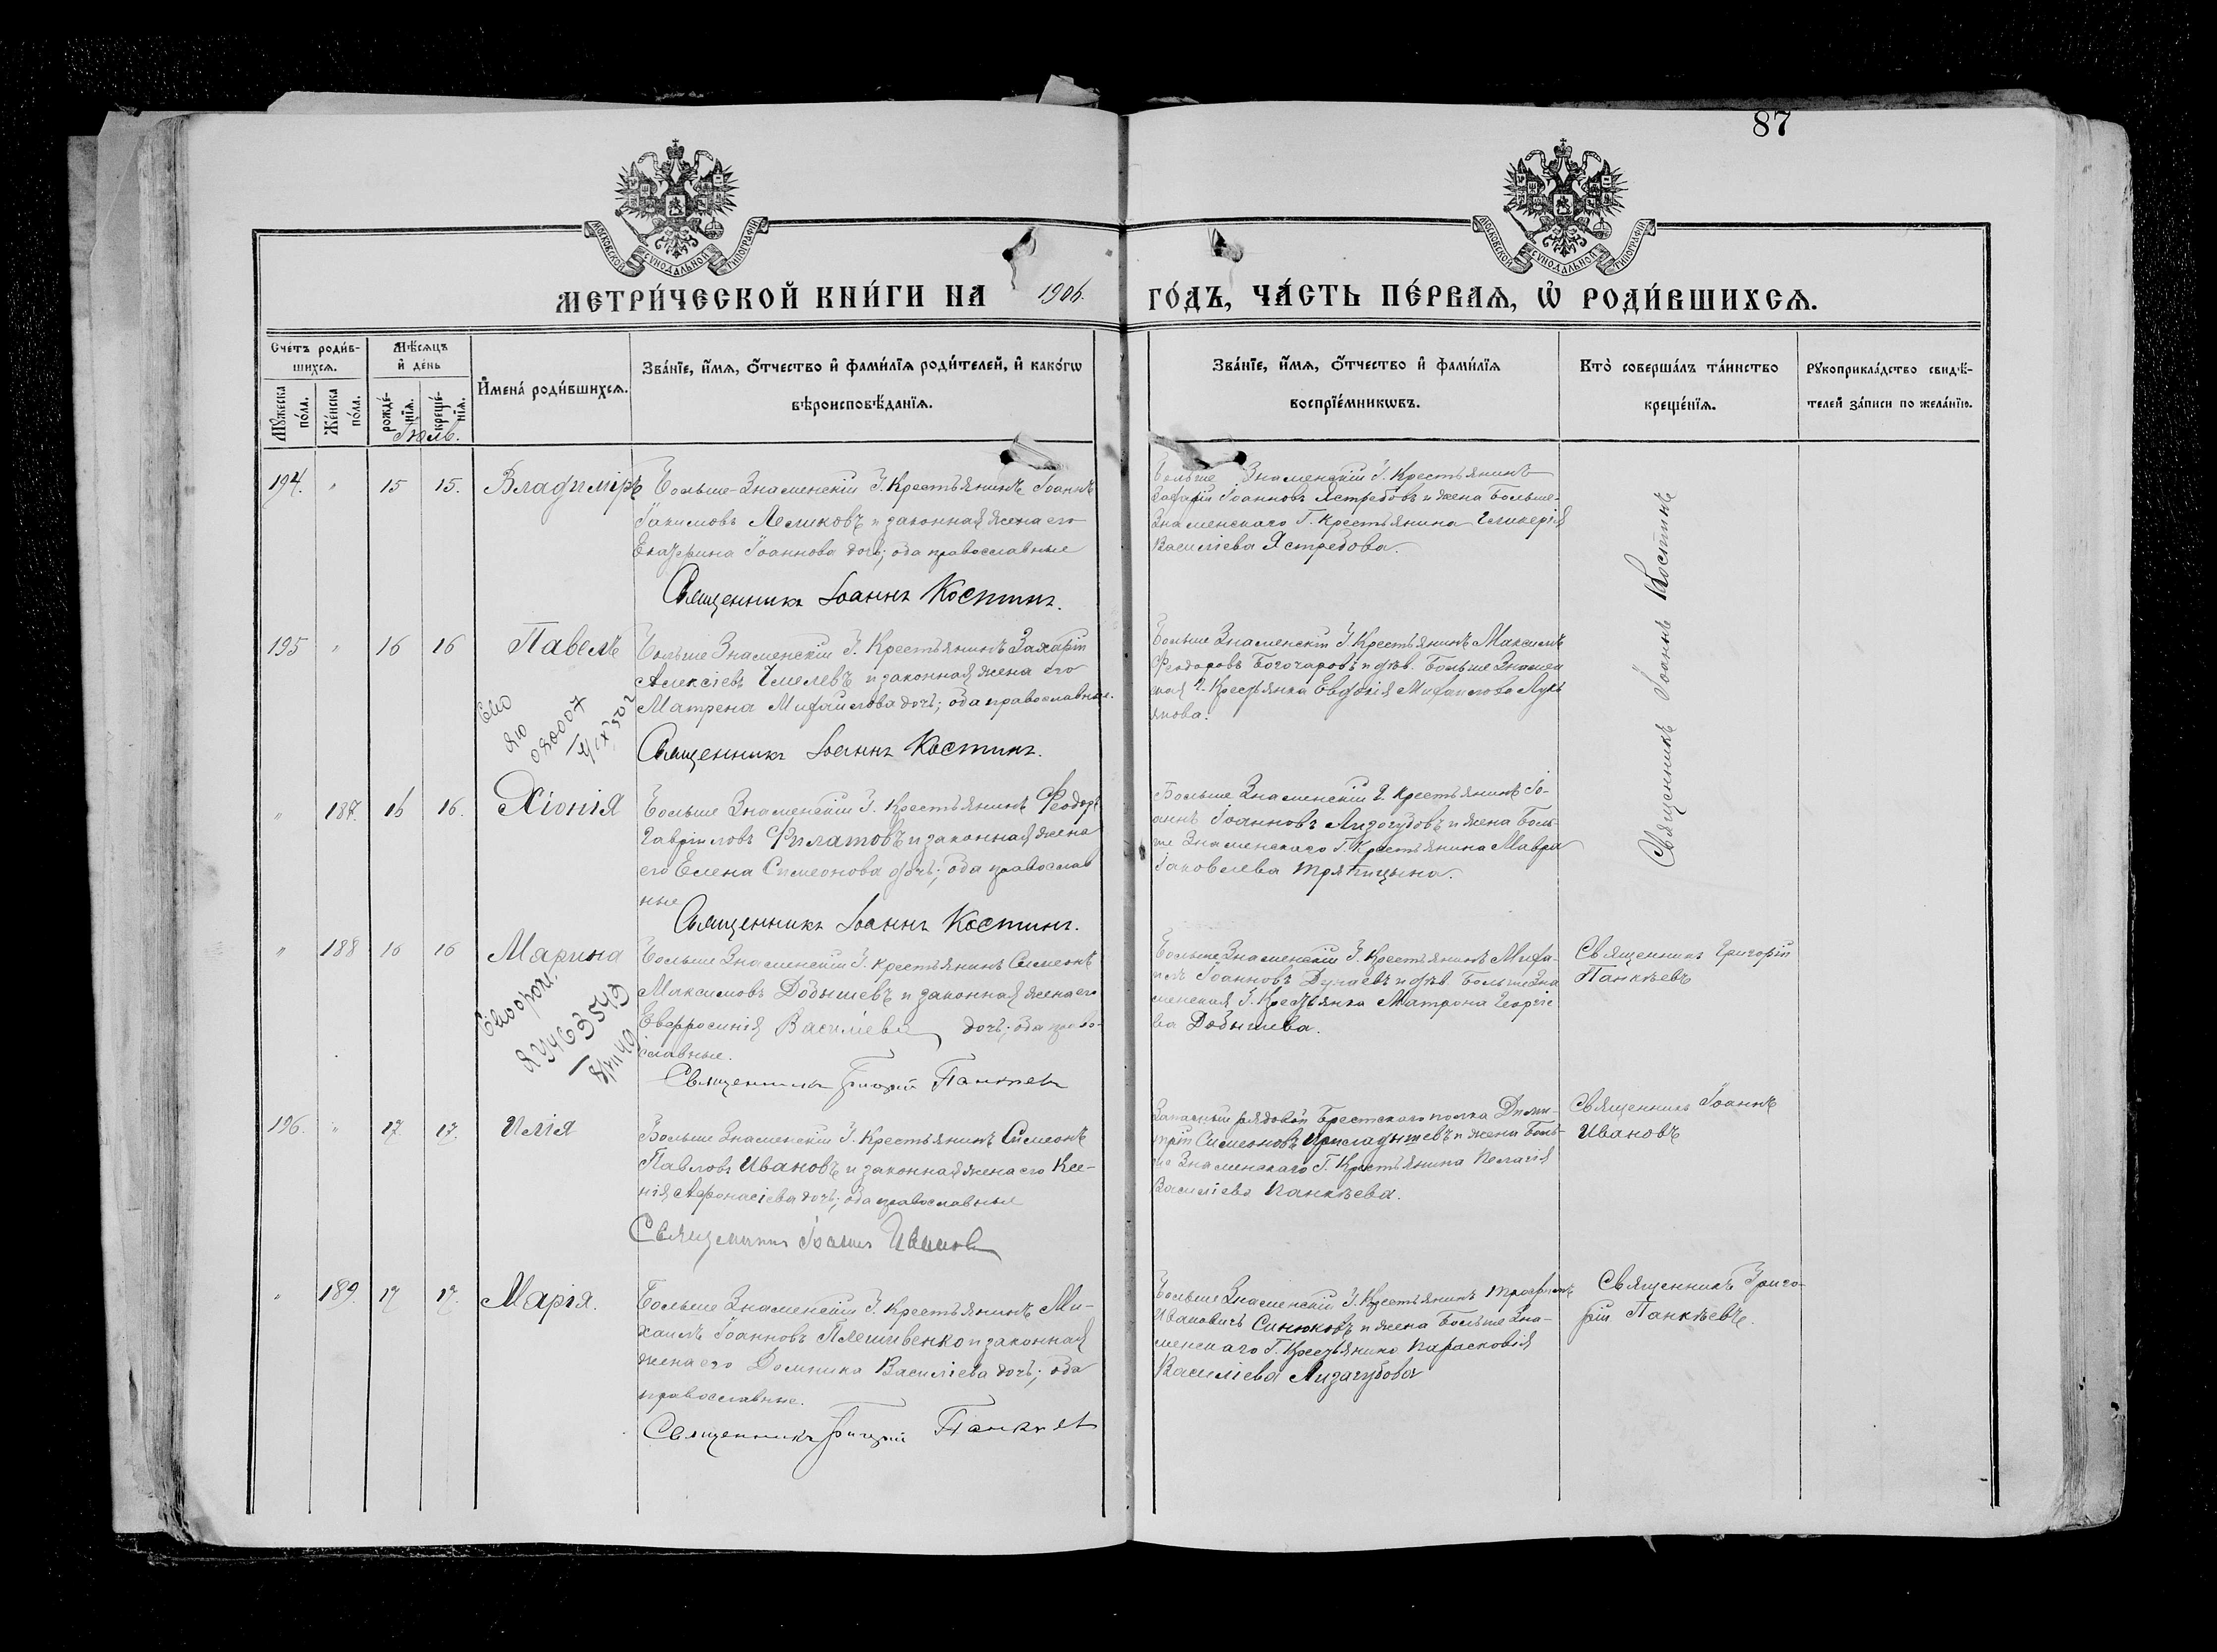 87
МОСКОВСКОЙ СѴНОДАЛЬНОЙ ТИПОГРАФІИ
МОСКОВСКОЙ СѴНОДАЛЬНОЙ ТИПОГРАФІИ
МЕТРИ́ЧЕСКОЙ КНИ́ГИ НА 1906. ГО́ДЪ, ЧА́СТЬ ПЕ́РВАѦ, Ѡ҆ РОДИ́ВШИХСѦ.
Сче́тъ роди́в-
шихсѧ.
Мꙋжеска по́ла.
Же́нска по́ла.
Мѣ́сѧцъ и҆ де́нь
рожде́-нїѧ.
креще́-нїѧ.
Іюль.
И҆мена̀ роди́вшихсѧ.
Зва́нїе, и҆́мѧ, ѻ҆́тчество и҆ фами́лїѧ роди́телей, и҆ како́гѡ
вѣроисповѣ́данїѧ.
Зва́нїе, и҆́мѧ, ѻ҆́тчество и҆ фами́лїѧ
воспрїе́мникѡвъ.
Кто̀ соверша́лъ та́инство
креще́нїѧ.
Рꙋкоприкла́дство свидѣ́-
телей за́писи по жела́нїю.
194. " 15 15. Владиміръ
Больше-Знаменскій Г. Крестьянинъ Іоаннъ
Іакимовъ Леликовъ и законная жена его
Екатерина Іоаннова дочь; оба православные
Священникъ Іоаннъ Костинъ.
Больше Знаменскій Г. Крестьянинъ
Захарій Іоанновъ Ястребовъ и жена Больше-
Знаменскаго Г. Крестьянина Гликерія
Василіева Ястребова.
Священникъ Іоаннъ Костинъ
195 " 16 16 Павелъ
Больше Знаменскій Г. Крестьянинъ Захарій
Алексіевъ Чмелевъ и законная жена его
Матрена Михаилова дочь; оба православные.
Священникъ Іоаннъ Костинъ.
Больше Знаменскій Г. Крестьянинъ Максимъ
Феодоровъ Богочаровъ и дѣв. Больше Знамен
ская Г. Крестьянка Евдокія Михаилова Лукь
янова.
" 187. 16 16. Хіонія
Больше Знаменскій Г. Крестьянинъ Феодоръ
Гавріиловъ Филатовъ и законная жена
его Елена Симеонова дочь; оба православ
ные
Священникъ Іоаннъ Костинъ.
Больше Знаменскій Г. Крестьянинъ Іо-
аннъ Іоанновъ Лизогубовъ и жена Боль-
ше Знаменскаго Г. Крестьянина Мавра
Іаковлева Тряпицына.
" 188 16 16 Марина
Больше Знаменскій Г. Крестьянинъ Симеонъ
Максимовъ Добышевъ и законная жена его
Евфросинія Василіева дочь; оба право-
славные.
Священникъ Григорій Панкѣевъ
Больше Знаменскій Г. Крестьянинъ Миха-
илъ Іоанновъ Дугаевъ и дѣв. Больше Зна
менская Г. Крестьянка Матрона Георгіе
ва Добышева.
Священникъ Григорій
Панкѣевъ
196. " 17 17. Илія
Больше Знаменскій Г. Крестьянинъ Симеонъ
Павловъ Ивановъ и законная жена его Ксе-
нія Афонасіева дочь; оба православные
Священникъ Іоаннъ Ивановъ
Запасный рядовой Брестскаго полка Дими-
трій Симеоновъ Присладышевъ и жена Боль-
ше Знаменскаго Г. Крестьянина Пелагія
Василіева Панкѣева.
Священникъ Іоаннъ
Ивановъ
" 189. 17 17. Марія.
Больше Знаменскій Г. Крестьянинъ Ми-
хаилъ Іоанновъ Плешивенко и законная
жена его Домника Василіева дочь; оба
православные.
Священникъ Григорій Панкѣевъ
Больше Знаменскій Г. Крестьянинъ Трофимъ
Ивановичъ Синюковъ и жена Больше Зна-
менскаго Г. Крестьянина Парасковія
Василіева Лизагубова
Священникъ Григо-
рій Панкѣевъ.